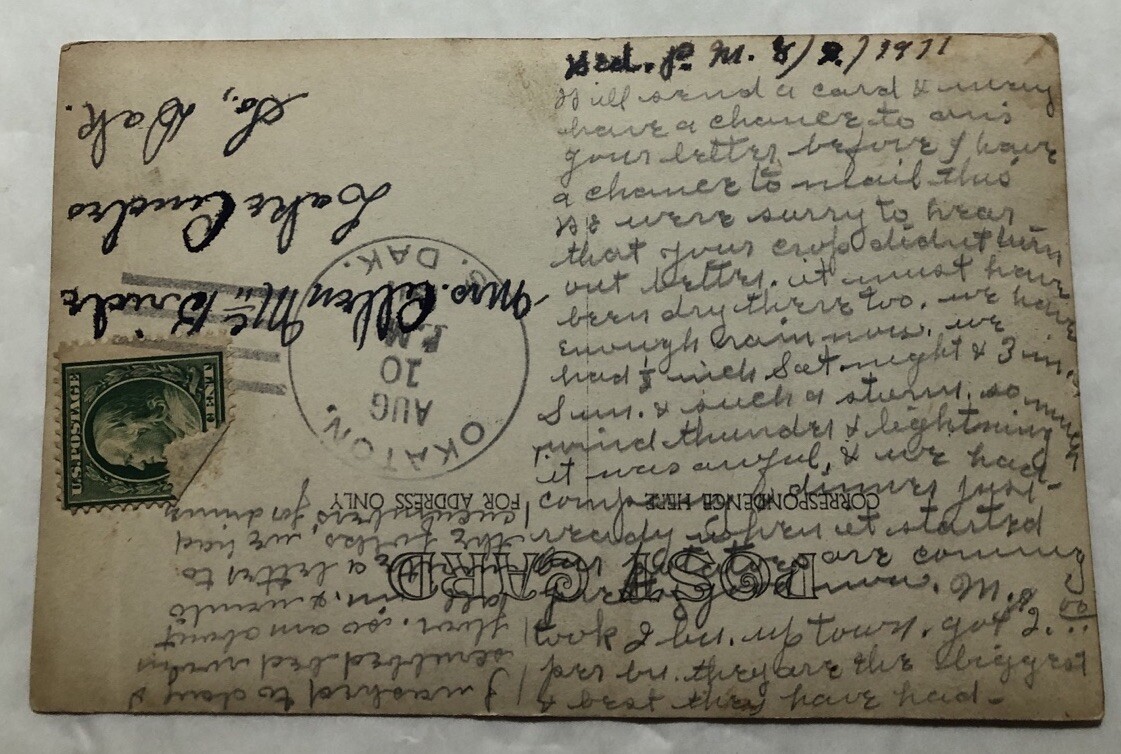 Wed. P. M. 8/9/1911
Will send a card & may
have a chance to ans
your letter before I have
a chance to mail this
We were surry to hear
that your crop didnt turn
out better. it must have
been dry there too. we have
enough rain now. we
had ½ inch Sat night & 3 in.
Sun. & such a storm. so much
wind thunder & lightning
it was awful, & we had
company, dinner just
ready when it started
our potatoes are coming
pretty good now. M.
took 2 bu. up town. got $2.00
per bu. they are the biggest
& best they have had-
I washed to day &
scrubed bed
over. so am about
all in. & wrote
a letter to
the folks, we had
cucumbers for dinner
POST CARD
CORRESPONDENCE HERE
FOR ADDRESS ONLY
OKATON,
S. DAK.
AUG
10
P.M.
U.S. POSTAGE
CENT
Mrs. Allen McBride
Lake Andes
So, Dak.